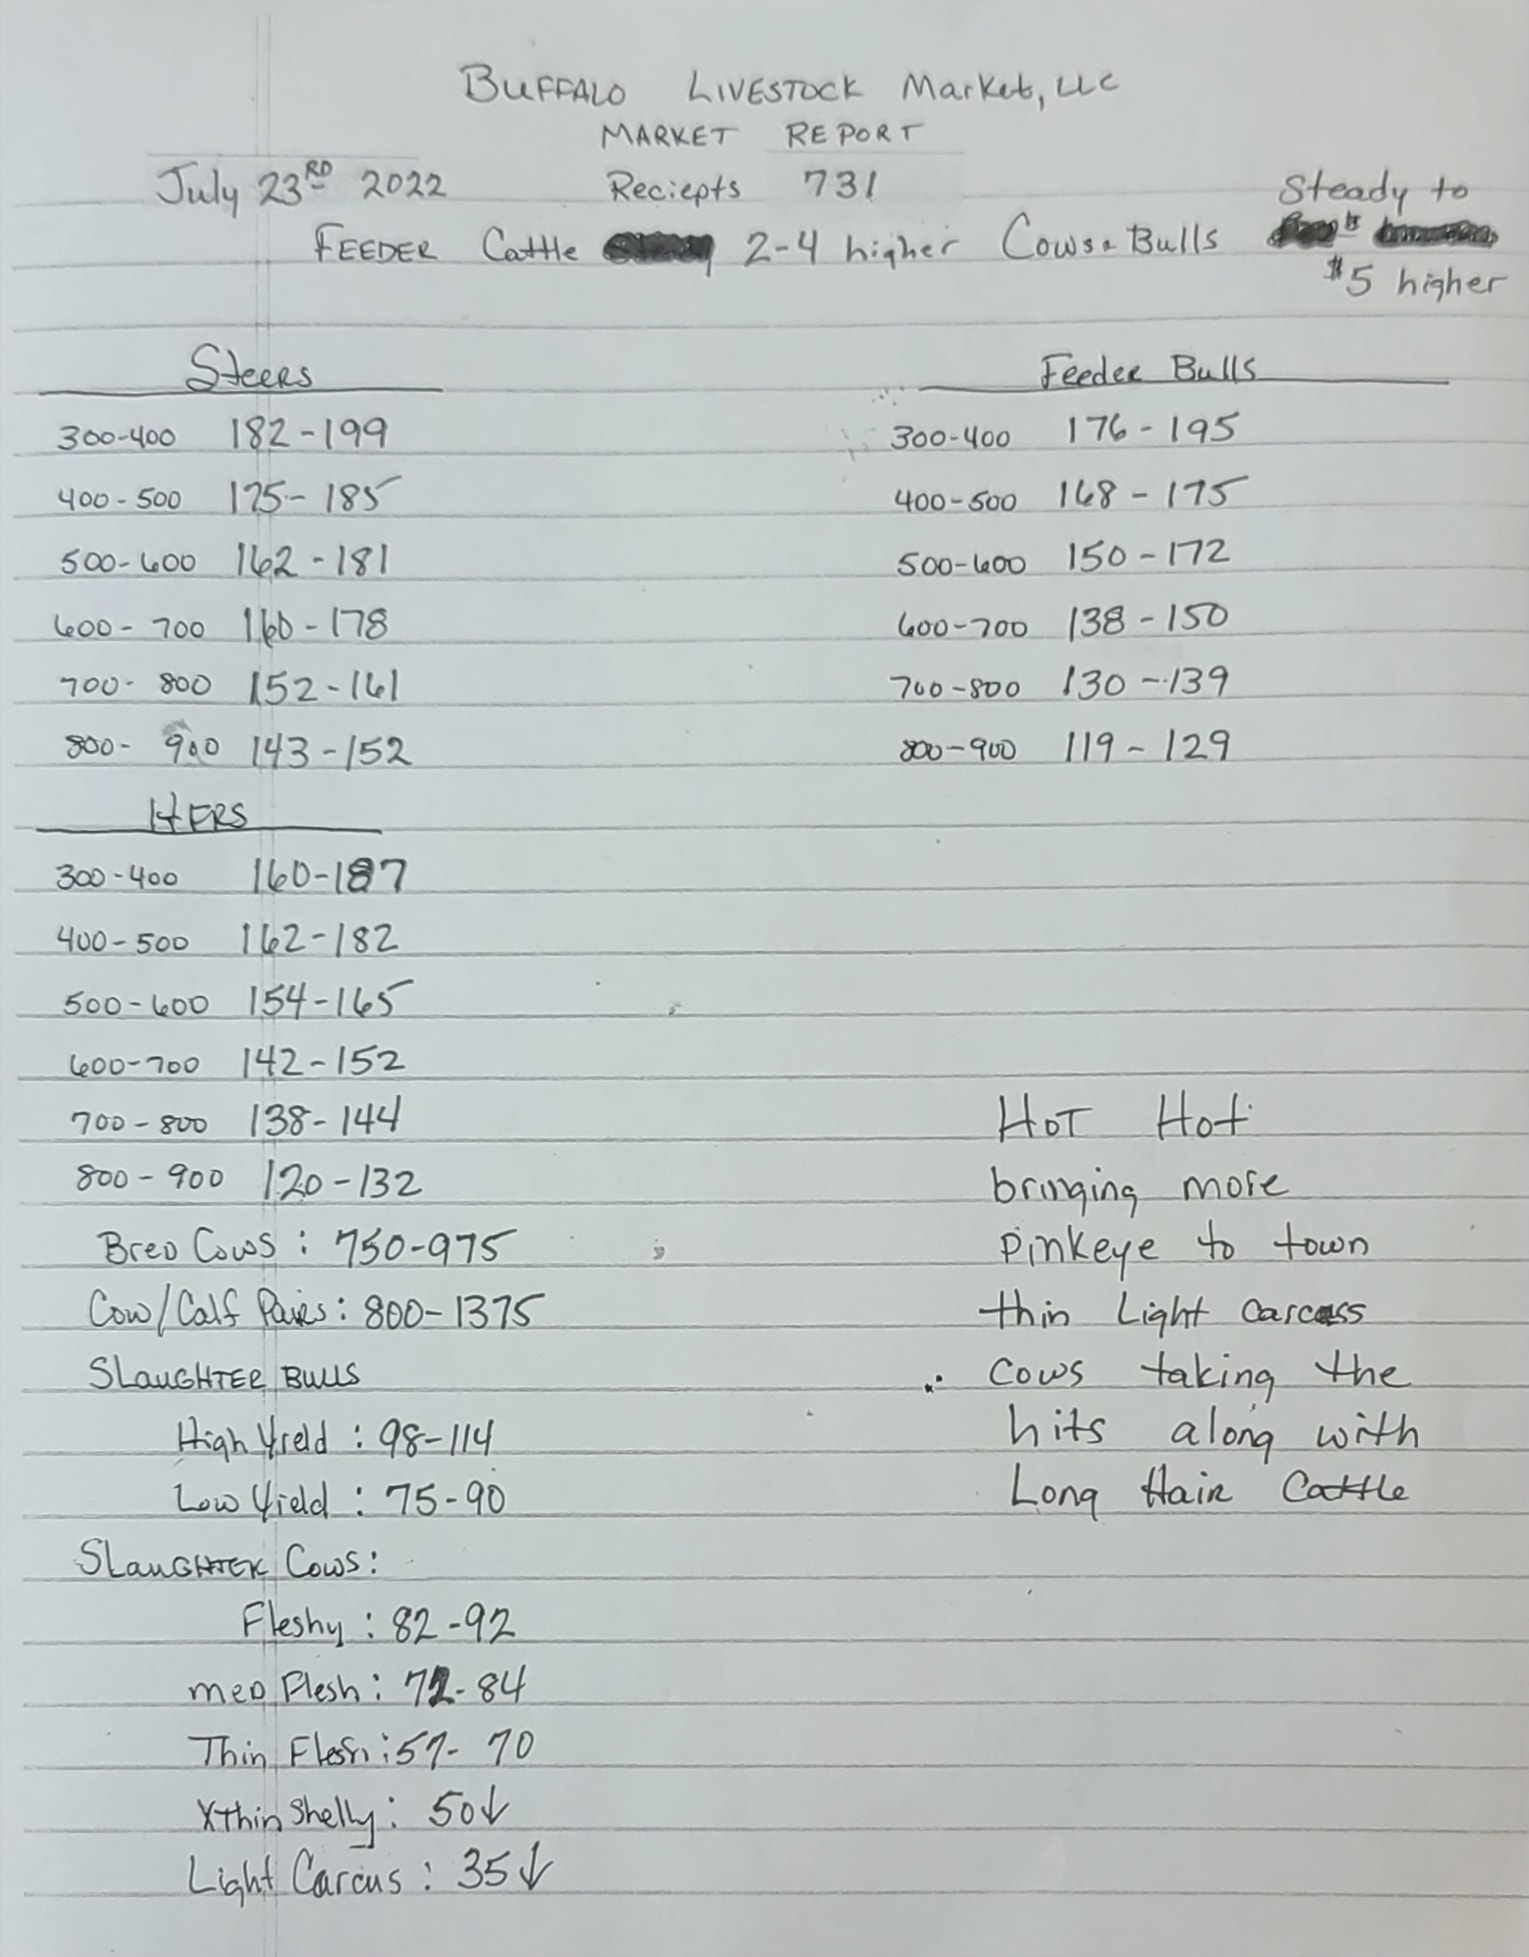 BUFFALO LIVESTOCK Market, LLC
MARKET REPORT
July 23RD 2022 Reciepts 731
FEEDER Cattle 2-4 higher Cows & Bulls Steady to
$5 higher
Steers
300-400 182-199
400-500 175-185
500-600 162-181
600-700 160-178
700-800 152-161
800-900 143-152
Feeder Bulls
300-400 176-195
400-500 168-175
500-600 150-172
600-700 138-150
700-800 130-139
800-900 119-129
HFRS
300-400 160-187
400-500 162-182
500-600 154-165
600-700 142-152
700-800 138-144
800-900 120-132
Bred Cows: 750-975
Cow/Calf Pairs: 800-1375
SLAUGHTER BULLS
High Yield: 98-114
Low Yield: 75-90
SLAUGHTER Cows:
Fleshy: 82-92
MED Flesh: 72-84
Thin Flesh: 57-70
Xthin Shelly: 50↓
Light Carcus: 35↓
HOT Hot
bringing more
pinkeye to town
thin Light carcass
cows taking the
hits along with
Long Hair Cattle